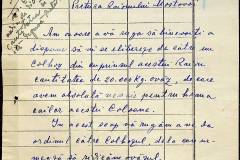 Pretura Raionului Mostovoi
Am onoare a vă ruga să binevoiți a
dispune să ni se elibereze de către un
Colhoz din cuprinsul acestui Raion
cantitatea de 20.000 kg. ovăz, de care
avem absolută nevoie pentru hrana
cailor acestei Coloane.
În acest scop vă rugăm a ne da
ordinul către Colhozul, dela care ur-
mează să ridicăm ovăzul.